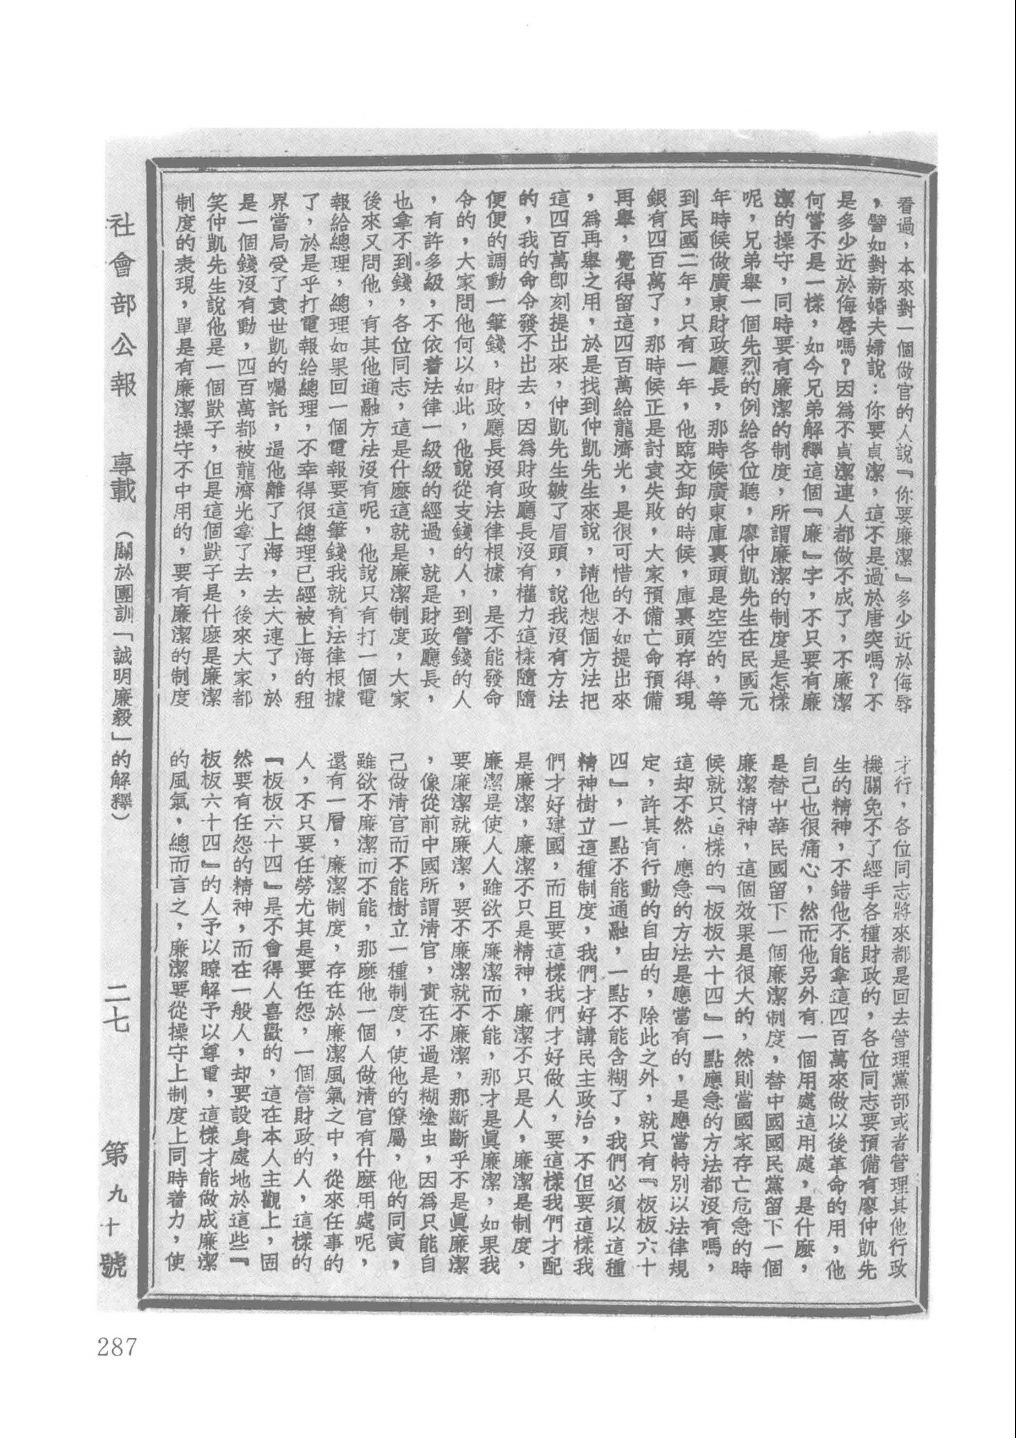 看過，本來對一個做官的人說『你要廉潔』多少近於侮辱
，譬如對新婚夫婦說：你要貞潔，這不是過於唐突嗎？不
是多少近於侮辱嗎？因為不貞潔連人都做不成了，不廉潔
何嘗不是一樣，如今兄弟解釋這個『廉』字，不只要有廉
潔的操守，同時要有廉潔的制度，所謂廉潔的制度是怎樣
呢，兄弟舉一個先烈的例給各位聽，廖仲凱先生在民國元
年時候做廣東財政廳長，那時候廣東庫裏頭是空空的，等
到民國二年，只有一年，他臨交卸的時候，庫裏頭存得現
銀有四百萬了，那時候正是討袁失敗，大家預備亡命預備
再舉，覺得留這四百萬給龍濟光，是很可惜的不如提出來
，為再舉之用，於是找到仲凱先生來說，請他想個方法把
這四百萬卽刻提出來，仲凱先生皺了眉頭，說我沒有方法
的，我的命令發不出去，因為財政廳長沒有權力這樣隨隨
便便的調動一筆錢，財政廳長沒有法律根據，是不能發命
令的，大家問他何以如此，他說從支錢的人，到管錢的人
，有許多級，不依着法律一級級的經過，就是財政廳長，
也拿不到錢，各位同志，這是什麼這就是廉潔制度，大家
後來又問他，有其他通融方法沒有呢，他說只有打一個電
報給總理，總理如果回一個電報要這筆錢我就有法律根據
了，於是乎打電報給總理，不幸得很總理已經被上海的租
界當局受了袁世凱的囑託，逼他離了上海，去大連了，於
是一個錢沒有動，四百萬都被龍濟光拿了去，後來大家都
笑仲凱先生說他是一個獃子，但是這個獃子是什麼是廉潔
制度的表現，單是有廉潔操守不中用的，要有廉潔的制度
才行，各位同志將來都是回去管理黨部或者管理其他行政
機關免不了經手各種財政的，各位同志要預備有廖仲凱先
生的精神，不錯他不能拿這四百萬來做以後革命的用，他
自己也很痛心，然而他另外有一個用處這用處，是什麼，
是替中華民國留下一個廉潔制度，替中國國民黨留下一個
廉潔精神，這個效果是很大的，然則當國家存亡危急的時
候就只這樣的『板板六十四』一點應急的方法都沒有嗎，
這却不然．應急的方法是應當有的，是應當特別以法律規
定，許其有行動的自由的，除此之外，就只有『板板六十
四』，一點不能通融，一點不能含糊了，我們必須以這種
精神樹立這種制度，我們才好講民主政治，不但要這樣我
們才好建國，而且要這樣我們才好做人，要這樣我們才配
是廉潔，廉潔不只是精神，廉潔不只是人，廉潔是制度，
廉潔是使人人雖欲不廉潔而不能，那才是眞廉潔，如果我
要廉潔就廉潔，要不廉潔就不廉潔，那斷斷乎不是眞廉潔
，像從前中國所謂清官，實在不過是糊塗虫，因為只能自
己做清官而不能樹立一種制度，使他的僚屬，他的同寅，
雖欲不廉潔而不能，那麼他一個人做清官有什麼用處呢，
還有一層，廉潔制度，存在於廉潔風氣之中，從來任事的
人，不只要任勞尤其是要任怨，一個管財政的人，這樣的
『板板六十四』是不會得人喜歡的，這在本人主觀上，固
然要有任怨的精神，而在一般人，却要設身處地於這些『
板板六十四』的人予以瞭解予以尊重，這樣才能做成廉潔
的風氣，總而言之，廉潔要從操守上制度上同時着力，使
社會部公報　專載（關於團訓「誠明廉毅」的解釋）　二七　第九十號
287